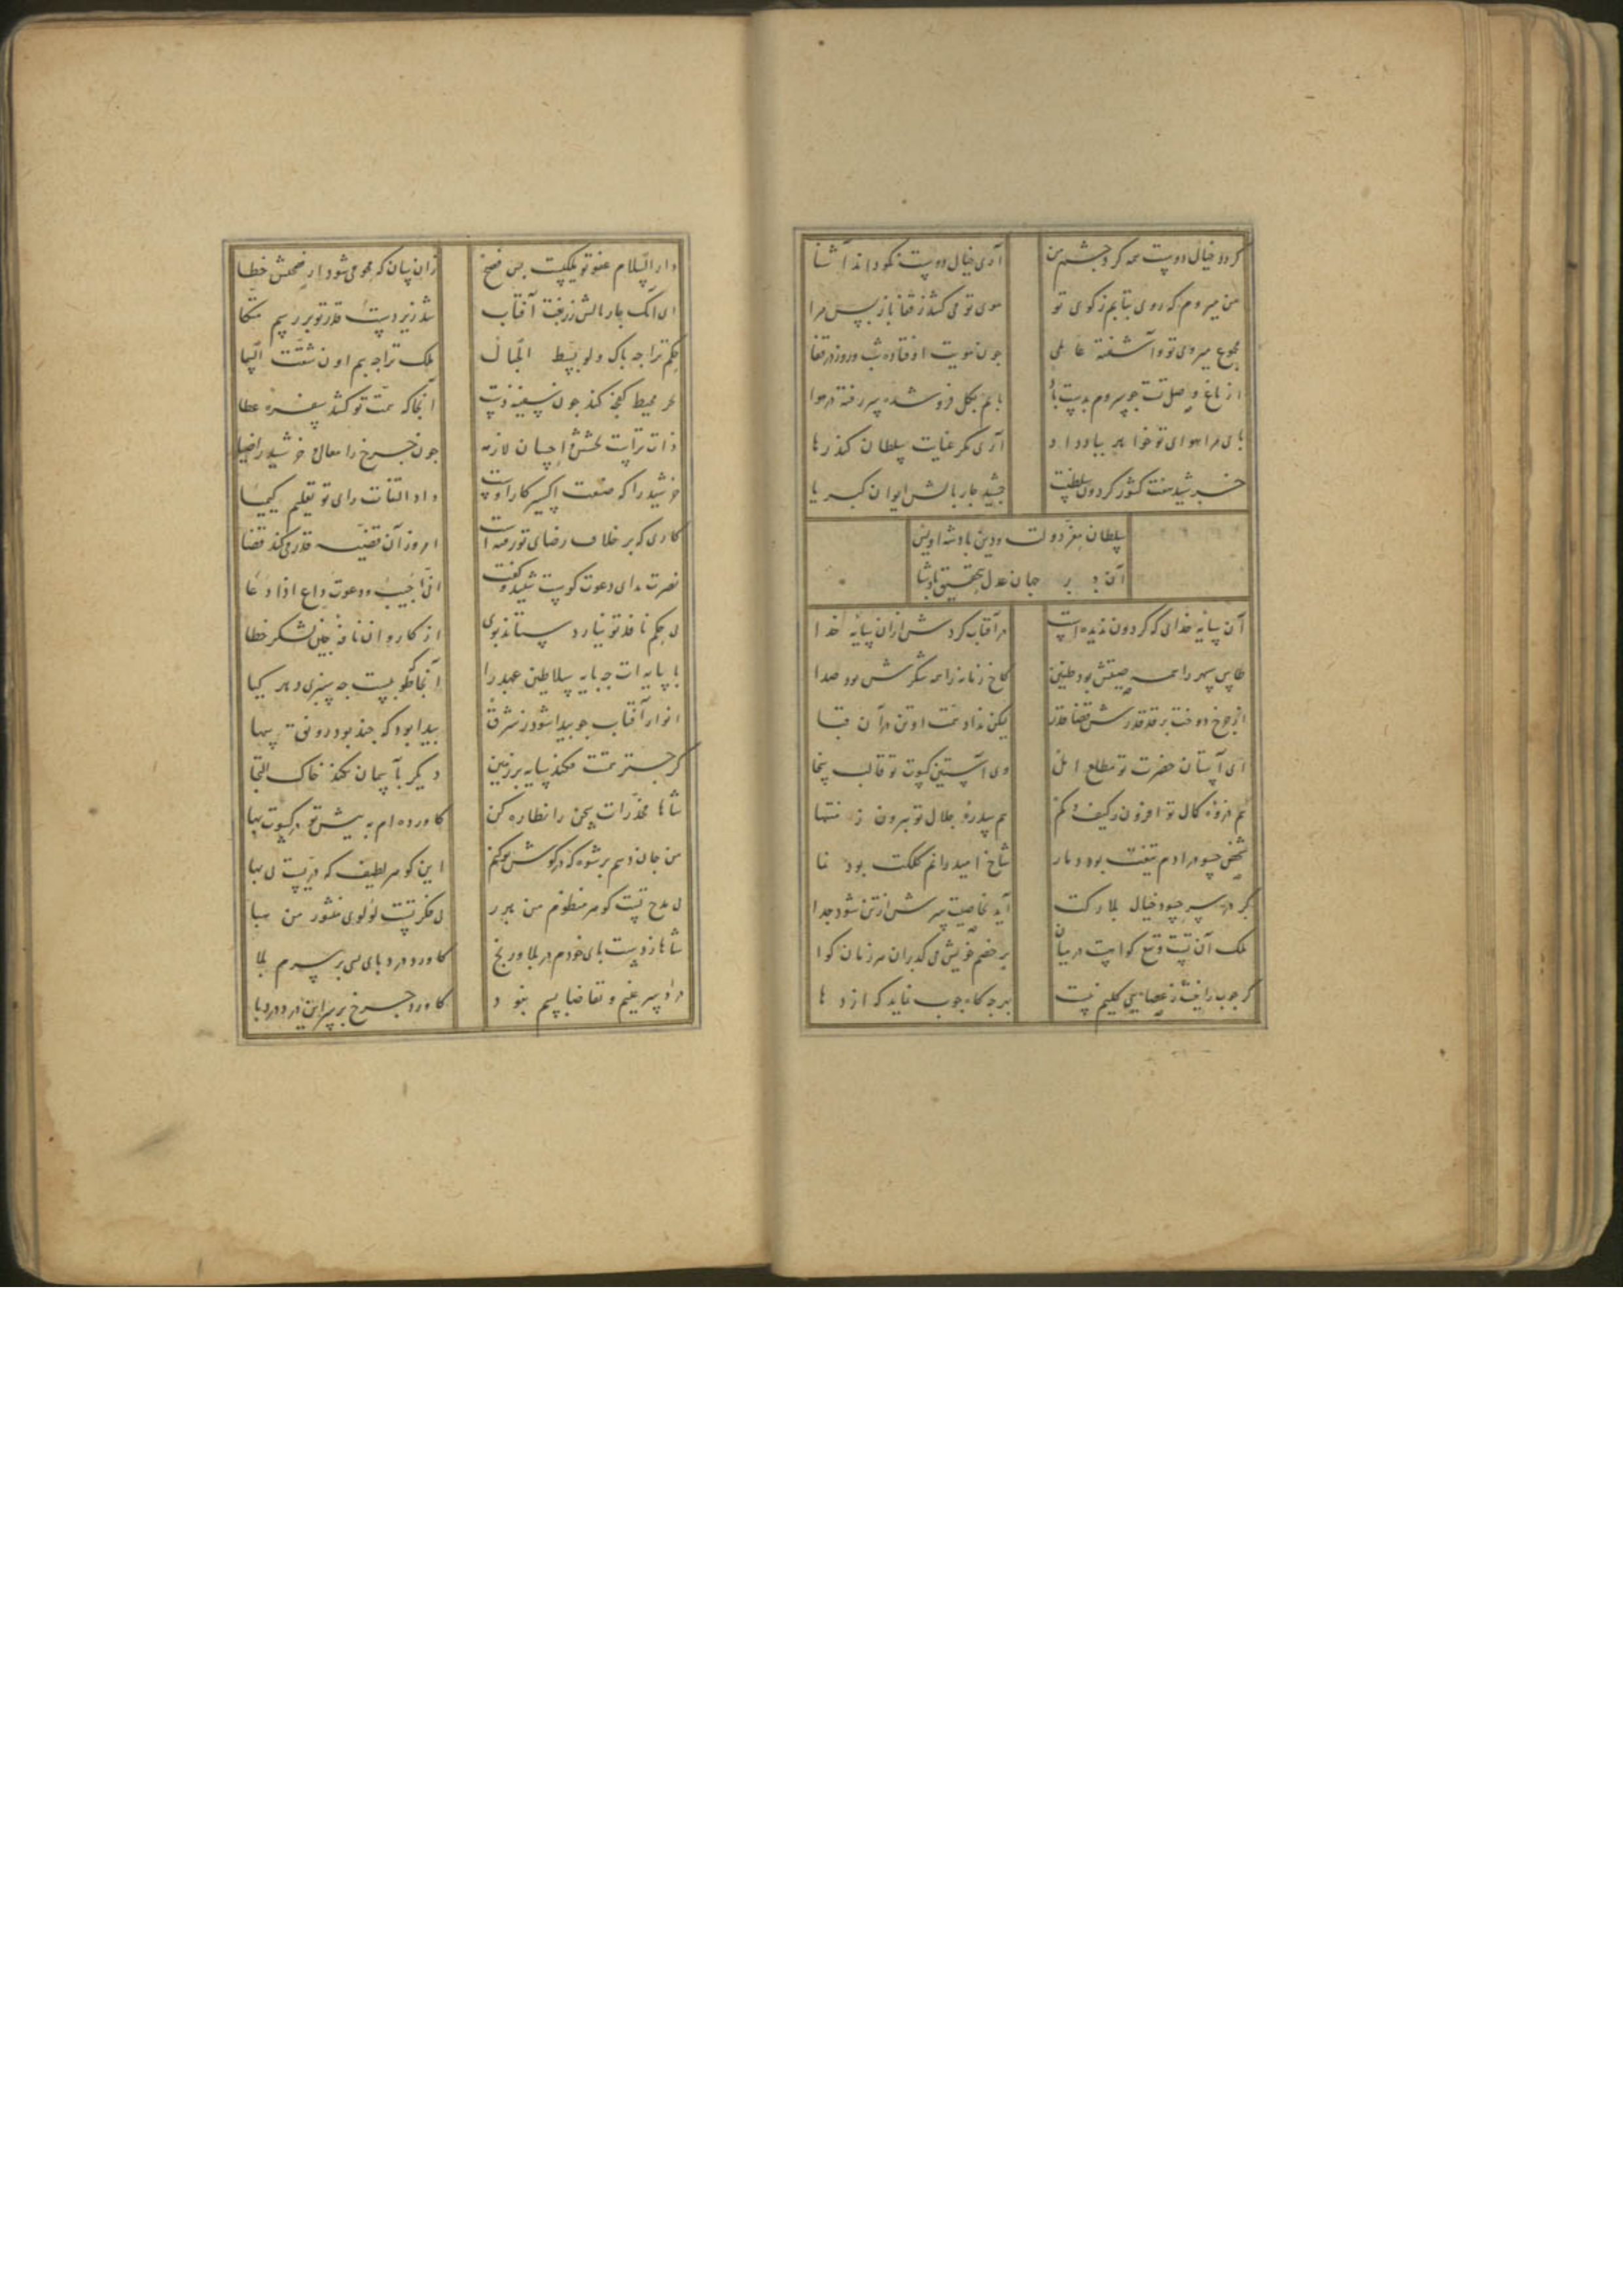 گردد خیال دوست همه گرد چشم من
آری خیال دوست نکو داند آشنا
من میروم که روی بتابم ز کوی تو
موی تو می کشد ز قفا باز پس مرا
مجموع میروی تو و آشفته عالمی
چون مویت اوفتاده شب و روز در قفا
از باغ وصل تست چو سروم بدست باد
پایم بگل فرو شده سر رفته در هوا
آری مگر عنایت سلطان کند رها
خورشید هفت کشور گردون سلطنت
جمشید چار بالش ایوان کبریا
سلطان معز دولت و دین پادشه اویس
آن بر جهان عدل بتحقیق پادشا
آن سایه خدای که گردون ندیده است
در آفتاب گردش ازان سایه خدا
طاس سپهر را همه صیتش بود طنین
کاخ زمانه را همه شکرش بود صدا
از چرخ دوخت بر قد قدرش قضا قدر
لیکن نداد همت او تن در آن قبا
ای آستان حضرت تو مطلع امل
وی آستین کسوت تو قالب سخا
هم ذروه کمال تو افزون ز کیف و کم
هم سدره جلال تو بیرون ز منتها
شاخ امید را نم کلکت بود نما
گر در سر حسود خیال بلارکت
آید بخاصیت سرش از تن شود جدا
ملک آن تست و تیغ گواهست در میان
بر خصم خویش می گذران هر زمان گوا
گر چوب را خیال عصای کلیم نیست
هر چوب ناید که اژدها
دار السلام عفو تو ملکیست بس فسیح
زان سان که محو می شود از فسحتش خطا
ای آنک چار بالش زربفت آفتاب
شد زیر دست قدر تو بر رسم متکا
حکم ترا چه باک ولو بست الجبال
ملک ترا چه بیم اون شقت السما
بحر محیط کفچه کند چون سفینه دست
آنجا که همت تو کشد سفره عطا
ذات تراست بخشش و احسان لازمه
چون چرخ را معالی و خرشید را ضیا
خرشید را که صنعت اکسیر کار اوست
داد التفات رای تو تعلیم کیمیا
کاری که بر خلاف رضای تو رفته است
امروز آن قضیه قدر می کند قضا
نصرت ندای دعوت کوست شنید و گفت
انی اجیب دعوت داع اذا دعا
بی حکم نافذ تو نیارد ستاند بوی
از کاروان نافه چین لشکر خطا
با پایه ات چه پایه سلاطین عهد را
آنجا که طوبیست چه سبزی دهد گیا
انوار آفتاب چو پیدا شود ز شرق
پیدا بود که چند بود رونق سها
گر چتر همتت فکند سایه بر زمین
دیگر بآسمان نکند خاک التجا
شاها مخدرات سخن را نظاره کن
کاورده ام به پیش تو در کسوت بها
من جان دهم بر شوه که در گوش تو کنم
این گوهر لطیف که دریست بی بها
بی مدح تست گوهر منظوم من هدر
بی فکر تست لؤلؤی منثور من هبا
شاها ز دست پای خودم در بلا و رنج
کاورد درد پای بسی بر سرم بلا
درد سر غنیم و تقاضا بسم نبود
کاورد چرخ بر سر این درد درد پا